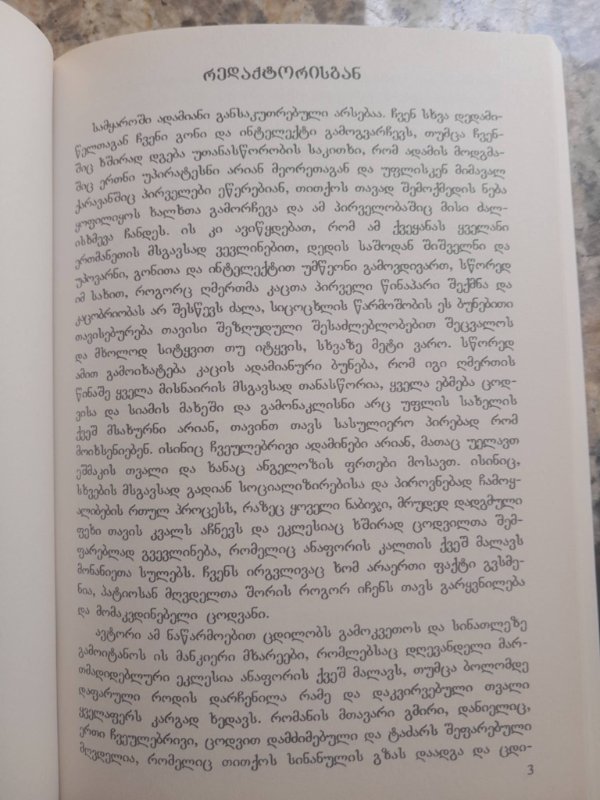 რედაქტორისგან
სამყაროში ადამიანი განსაკუთრებული არსებაა. ჩვენ სხვა დედამი-
წელთაგან ჩვენი გონი და ინტელექტი გამოგვარჩევს, თუმცა ჩვენ-
შიც ხშირად დგება უთანასწორობის საკითხი, რომ ადამის მოდგმა-
შიც ერთნი უპირატესნი არიან მეორეთაგან და უფლისკენ მიმავალ
ქარავანშიც პირველები ეწერებიან, თითქოს თავად შემოქმედის ნება
ყოფილიყოს ხალხთა გამორჩევა და ამ პირველობაშიც მისი ძალ-
ისხმევა ჩანდეს. ის კი ავიწყდებათ, რომ ამ ქვეყანას ყველანი
ერთმანეთის მსგავსად ვევლინებით, დედის საშოდან შიშველნი და
უპოვარნი, გონითა და ინტელექტით უმწეონი გამოვდივართ, სწორედ
იმ სახით, როგორც ღმერთმა კაცთა პირველი წინაპარი შექმნა და
კაცობრიობას არ შესწევს ძალა, სიცოცხლის წარმოშობის ეს ბუნებითი
თავისებურება თავისი შეზღუდული შესაძლებლობებით შეცვალოს
და მხოლოდ სიტყვით თუ იტყვის, სხვაზე მეტი ვარო. სწორედ
ამით გამოიხატება კაცის ადამიანური ბუნება, რომ იგი ღმერთის
წინაშე ყველა მისნაირის მსგავსად თანასწორია, ყველა ებმება ცოდ-
ვისა და სიამის მახეში და გამონაკლისნი არც უფლის სახელის
ქვეშ მსახურნი არიან, თავინთ თავს სასულიერო პირებად რომ
მოიხსენიებენ. ისინიც ჩვეულებრივი ადამინები არიან, მათაც უელავთ
ეშმაკის თვალი და ხანაც ანგელოზის ფრთები მოსავთ. ისინიც,
სხვების მსგავსად გადიან სოციალიზირებისა და პიროვნებად ჩამოყ-
ალიბების რთულ პროცესს, რაზეც ყოველი ნაბიჯი, მრუდედ დადგმული
ფეხი თავის კვალს აჩნევს და ეკლესიაც ხშირად ცოდვილთა შემ-
ფარებლად გვევლინება, რომელიც ანაფორის კალთის ქვეშ მალავს
მონანიეთა სულებს. ჩვენს ირგვლივაც ხომ არაერთი ფაქტი გვსმე-
ნია, პატიოსან მღვდელთა შორის როგორ იჩენს თავს გარყვნილება
და მომაკვდინებელი ცოდვანი.
ავტორი ამ ნაწარმოებით ცდილობს გამოკვეთოს და სინათლეზე
გამოიტანოს ის მანკიერი მხარეები, რომლებსაც დღევანდელი მარ-
თმადიდებლური ეკლესია ანაფორის ქვეშ მალავს, თუმცა ბოლომდე
დაფარული როდის დარჩენილა რამე და დაკვირვებული თვალი
ყველაფერს კარგად ხედავს. რომანის მთავარი გმირი, დანიელიც,
ერთი ჩვეულებრივი, ცოდვით დამძიმებული და ტაძარს შეფარებული
მღვდელია, რომელიც თითქოს სინანულის გზას დაადგა და ცდი-
3